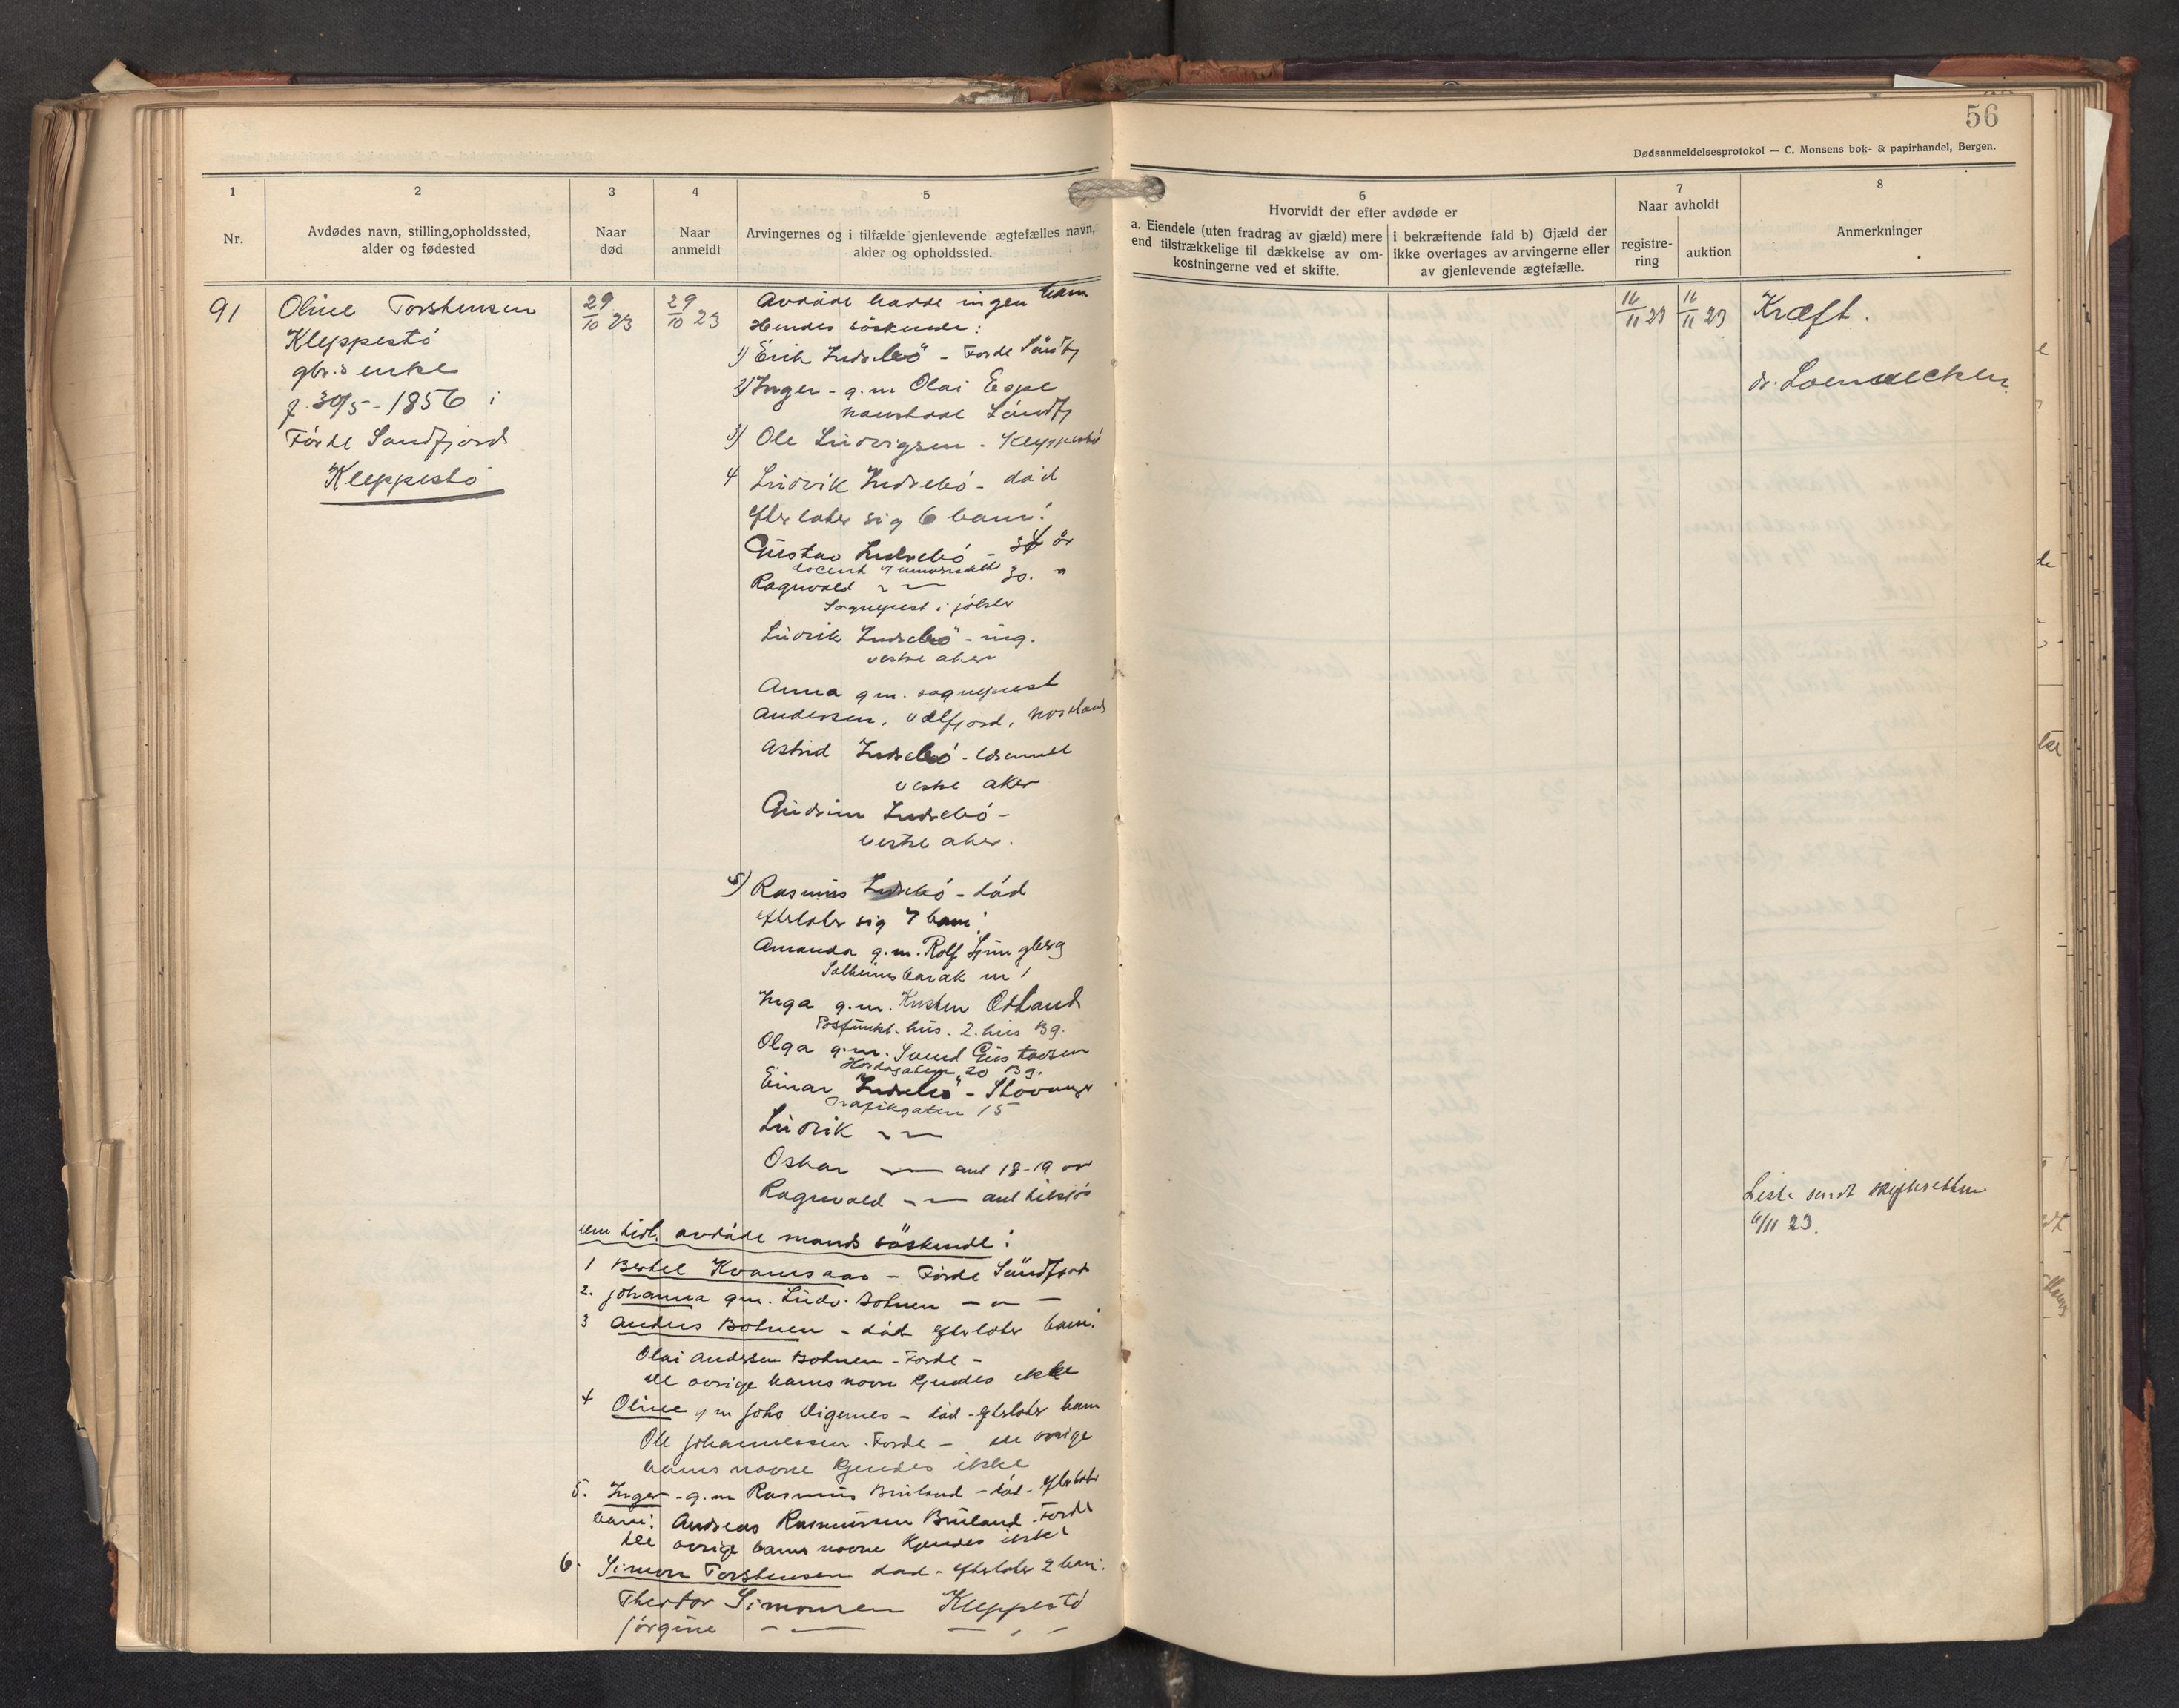 56
Dødsanmeldelsesprotokol — C. Monsens bok- & papirhandel, Bergen.
1
Nr.
2
Avdødes navn, stilling,opholdssted,
alder og fødested
3
Naar
død
4
Naar
anmeldt
5
Arvingernes og i tilfælde gjenlevende ægtefælles navn,
alder og opholdssted.
6
Hvorvidt der efter avdøde er
a. Eiendele (uten fradrag av gjæld) mere
end tilstrækkelige til dækkelse av om-
kostningerne ved et skifte.
i bekræftende fald b) Gjæld der
ikke overtages av arvingerne eller
av gjenlevende ægtefælle.
7
Naar avholdt
registre-
ring
auktion
8
Anmerkninger
91
Oline Torstensen
Kleppestö
gbr.s enke
f. 30/5 - 1856 i
Förde Söndfjord
Kleppestö
29/10 23
29/10 23
Avdöde hadde ingen barn
Hendes söskende:
1) Erik Indrebö - Förde Söndfj
2) Inger - g.m Olai Egge
Naustdal Söndfj
3) Ole Ludvigsen - Kleppestö
4 Ludvik Indrebö - död
efterlater sig 6 barn:
Gustav Indrebö - 34 år
docent v universitetet
Ragnvald 30. "
Sogneprest i Jölster
Ludvik Indrebö - ing.
vestre aker
Anna g m. sogneprest
Andersen, Velfjord, Nordland
Astrid Indrebö -
vestre aker
Gudrun Indrebö -
vestre aker.
5) Rasmus Indrebö - död
efterlater sig 7 barn:
Amanda g.m. Rolf Ljungberg
Solheimsbarak nr 1
Inga g.m. Kristen Östland
hus. 2. hus Bg.
Olga g.m. Svend Gustavsen
20 Bg.
Einar Indrebö - Stavanger
Trafikgaten 15
Ludvik
Oskar ant 18-19 år
Ragnvald ant tilsjös
som tidl. avdöde mands söskende:
1 Bertel Kvamsaas - Förde Söndfjord
2. Johanna gm. Ludv. Botnen - " -
3 Anders Botnen - död efterlater barn:
Olai Andersen Botnen - Förde -
de övrige barns navne kjendes ikke
4 Oline g m Johs Digernes - död - efterlater barn
Ole Johannessen. Förde - de övrige
barns navne kjendes ikke
5. Inger - g.m Rasmus Bruland - död - efterlater
barn: Andreas Rasmussen Bruland Förde
de övrige barns navne kjendes ikke
6. Simon Torstensen död - efterlater 2 barn:
Theodor Simonsen Kleppestö
Jörgine
16/11 23
16/11 23
Kræft.
dr.
Liste sendt skifteretten
6/11 23.